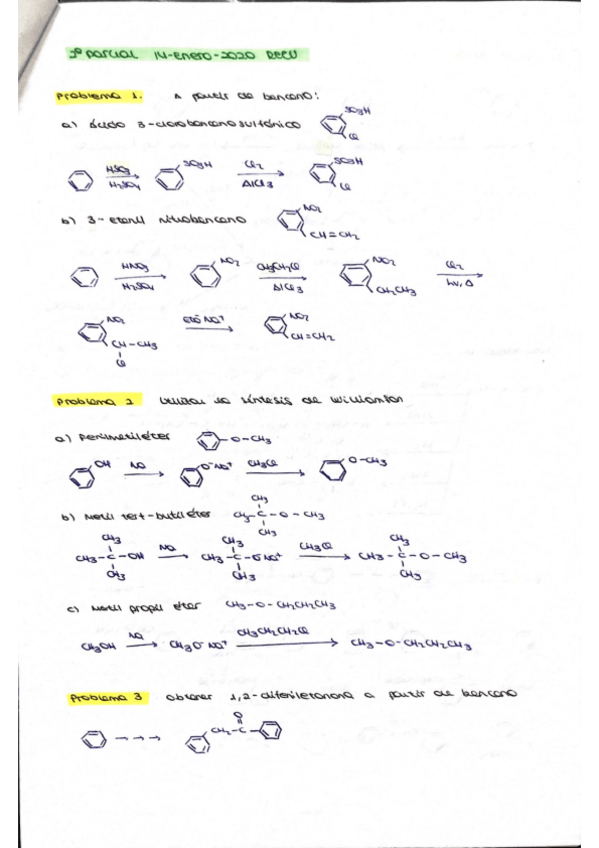 2º parcial 14-enero-2020 RECU
Problema 1. A partir de benceno:
a) ácido 3-clorobencenosulfónico SO3H Cl
HSO3 H2SO4 SO3H Cl2 AlCl3 SO3H Cl
b) 3-etenil nitrobenceno NO2 CH=CH2
HNO3 H2SO4 NO2 CH3CH2Cl AlCl3 NO2 CH2CH3 Cl2 hν, Δ
NO2 CH-CH3 Cl EtO-Na+ NO2 CH=CH2
Problema 2 Utilizar la síntesis de Williamson
a) Fenilmetiléter O-CH3
OH Na O-Na+ CH3Cl O-CH3
b) Metil tert-butil éter CH3-C-O-CH3 CH3 CH3
CH3-C-OH CH3 CH3 Na CH3-C-O-Na+ CH3 CH3 CH3Cl CH3-C-O-CH3 CH3 CH3
c) Metil propil éter CH3-O-CH2CH2CH3
CH3OH Na CH3O-Na+ CH3CH2CH2Cl CH3-O-CH2CH2CH3
Problema 3 Obtener 1,2-difeniletanona a partir de benceno
CH2-C O